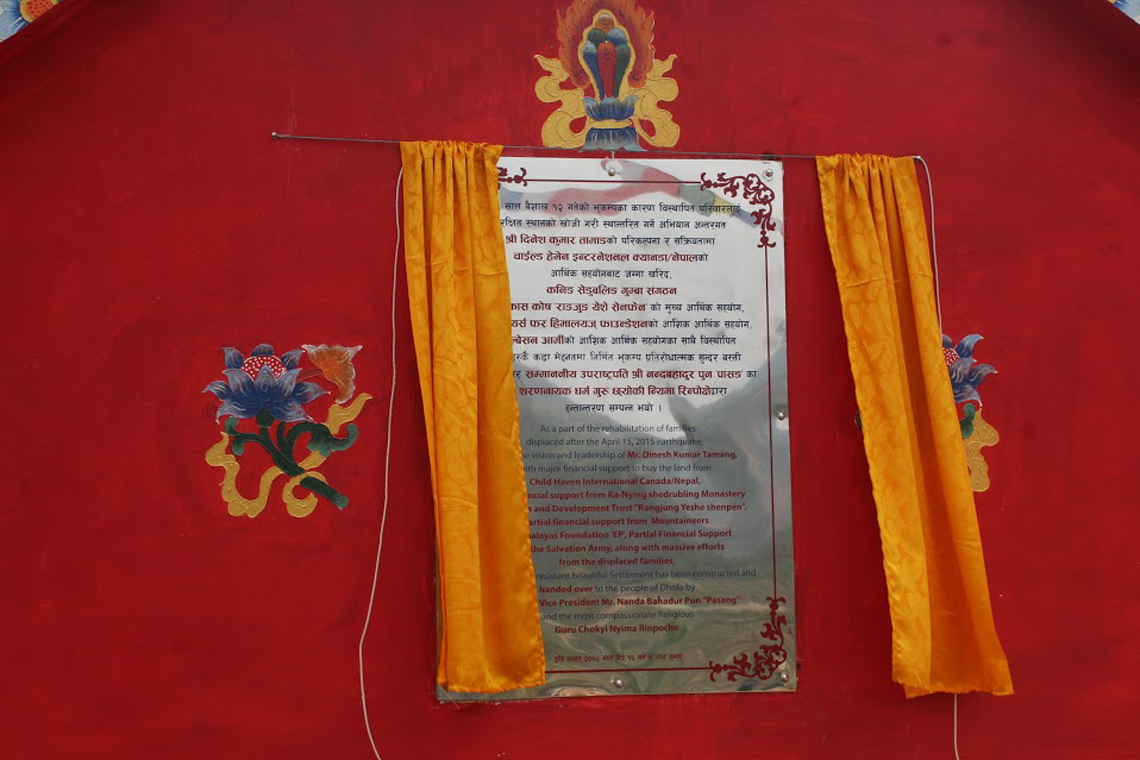 साल बैशाख १२ गतेको भूकम्पका कारण विस्थापित परिवारलाई
स्थानको खोजी गरी स्थान्तरित गर्ने अभियान अन्तरगत
श्री दिनेश कुमार तामाङको परिकल्पना र सक्रियतामा
चाईल्ड हेभेन इन्टरनेशनल क्यानडा/नेपालको
आर्थिक सहयोगबाट जग्गा खरिद,
कनिङ सेडुबलिङ गुम्बा संगठन
कास कोष राङजुङ येशे सेनफेन को मुख्य आर्थिक सहयोग,
यर्स फर हिमालयज् फाउन्डेशनको आशिक आर्थिक सहयोग,
आर्मीको आशिक आर्थिक सहयोगका साथै विस्थापित
कडा मेहनतमा निर्मित भूकम्प प्रतिरोधात्मक सुन्दर बस्ती
सम्माननीय उपराष्ट्रपति श्री नन्दबहादुर पुन पासङ का
शरणनायक धर्म गुरु छ्योकी न्यिमा रिन्पोक्षेद्वारा
हस्तान्तरण सम्पन्न भयो ।
As a part of the rehabilitation of families
displaced after the April 15, 2015 earthquake,
vision and leadership of Mr. Dinesh Kumar Tamang,
with major financial support to buy the land from
Child Haven International Canada/Nepal,
ncial support from Ka-Nying shedrubling Monastery
and Development Trust "Rangjung Yeshe shenpen",
artial financial support from Mountaineers
alayas Foundation 'EP', Partial Financial Support
the Salvation Army, along with massive efforts
from the displaced families,
resistant beautiful Settlement has been constructed and
handed over to the people of Dhola by
Vice President Mr. Nanda Bahadur Pun "Pasang"
and the most compassionate Religious
Guru Chokyi Nyima Rinpoche.